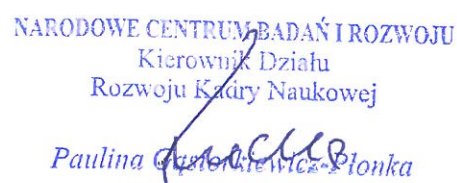 NARODOWE CENTRUM BADAŃ I ROZWOJU
Kierownik Działu
Rozwoju Kadry Naukowej
Paulina Gąsiorkiewicz-Płonka